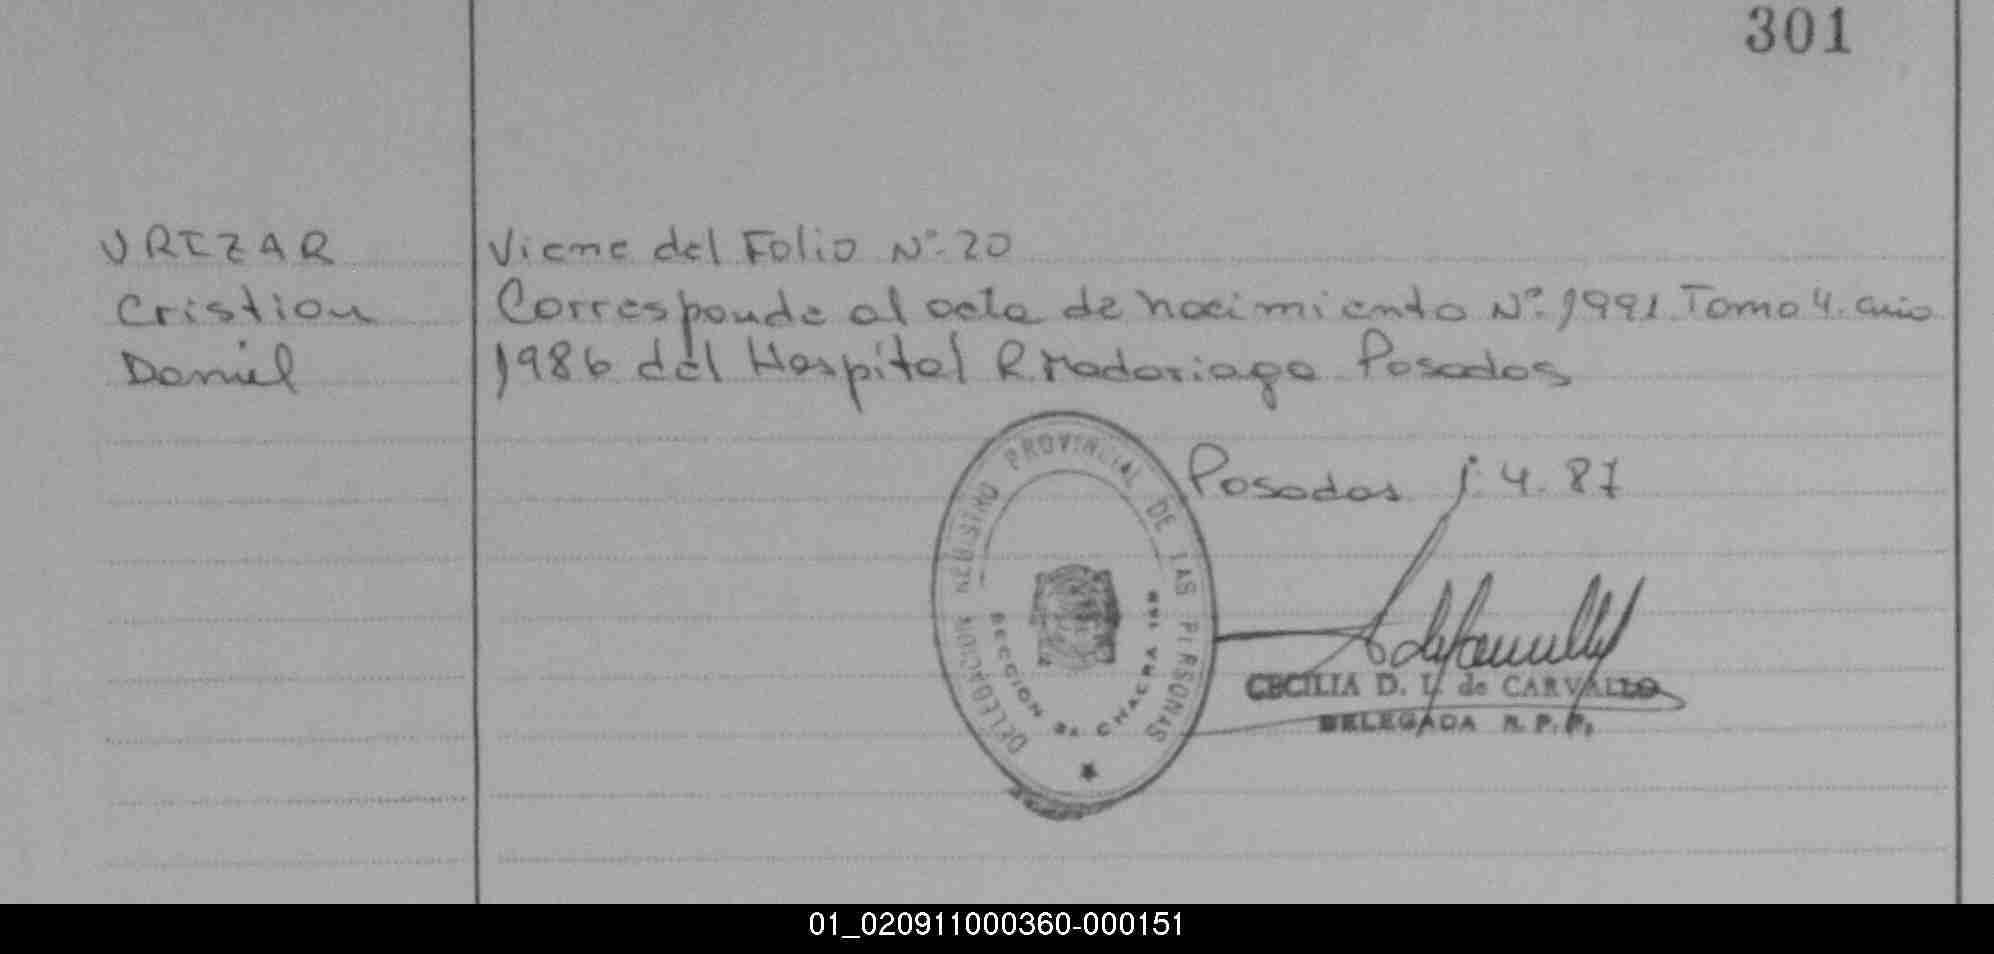 301
URIZAR
Cristian
Daniel
Viene del Folio Nº 20
Corresponde al acta de nacimiento Nº 1991 Tomo 4. año
1986 del Hospital R. Madariaga Posadas
Posadas 1. 4. 87
DELEGACION REGISTRO PROVINCIAL DE LAS PERSONAS
SECCION 5a CHACRA
CECILIA D. L. de CARVALLO
DELEGADA R. P. P.
01_020911000360-000151